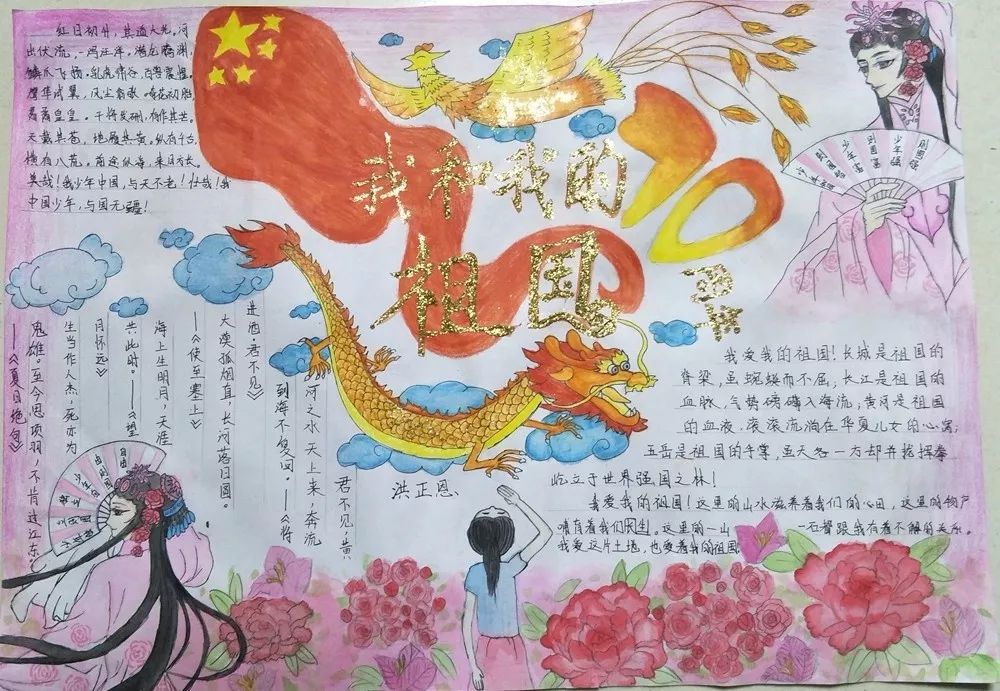 红日初升，其道大光。河
出伏流，一泻汪洋。潜龙腾渊，
鳞爪飞扬。乳虎啸谷，百兽震惶。
鹰隼试翼，风尘翕张。奇花初胎，
矞矞皇皇。干将发硎，有作其芒。
天戴其苍，地履其黄。纵有千古，
横有八荒。前途似海，来日方长。
美哉！我少年中国，与天不老！壮哉！我
中国少年，与国无疆！
我和我的
祖国
70
周年
少年强
则国强
少年富
则国富
君不见，黄
河之水天上来，奔流
到海不复回。——《将
进酒·君不见》
大漠孤烟直，长河落日圆。
——《使至塞上》
海上生明月，天涯
共此时。——《望
月怀远》
生当作人杰，死亦为
鬼雄。至今思项羽，不肯过江东。
——《夏日绝句》
洪正恩
我爱我的祖国！长城是祖国的
脊梁，虽蜿蜒而不屈；长江是祖国的
血脉，气势磅礴入海流；黄河是祖国
的血液，滚滚流淌在华夏儿女的心窝；
五岳是祖国的手掌，虽天各一方却并拢握拳
屹立于世界强国之林！
我爱我的祖国！这里的山水滋养着我们的心田，这里的物产
哺育着我们民生。这里的一山一石皆跟我有着不解的关系。
我爱这片土地，也爱着我的祖国